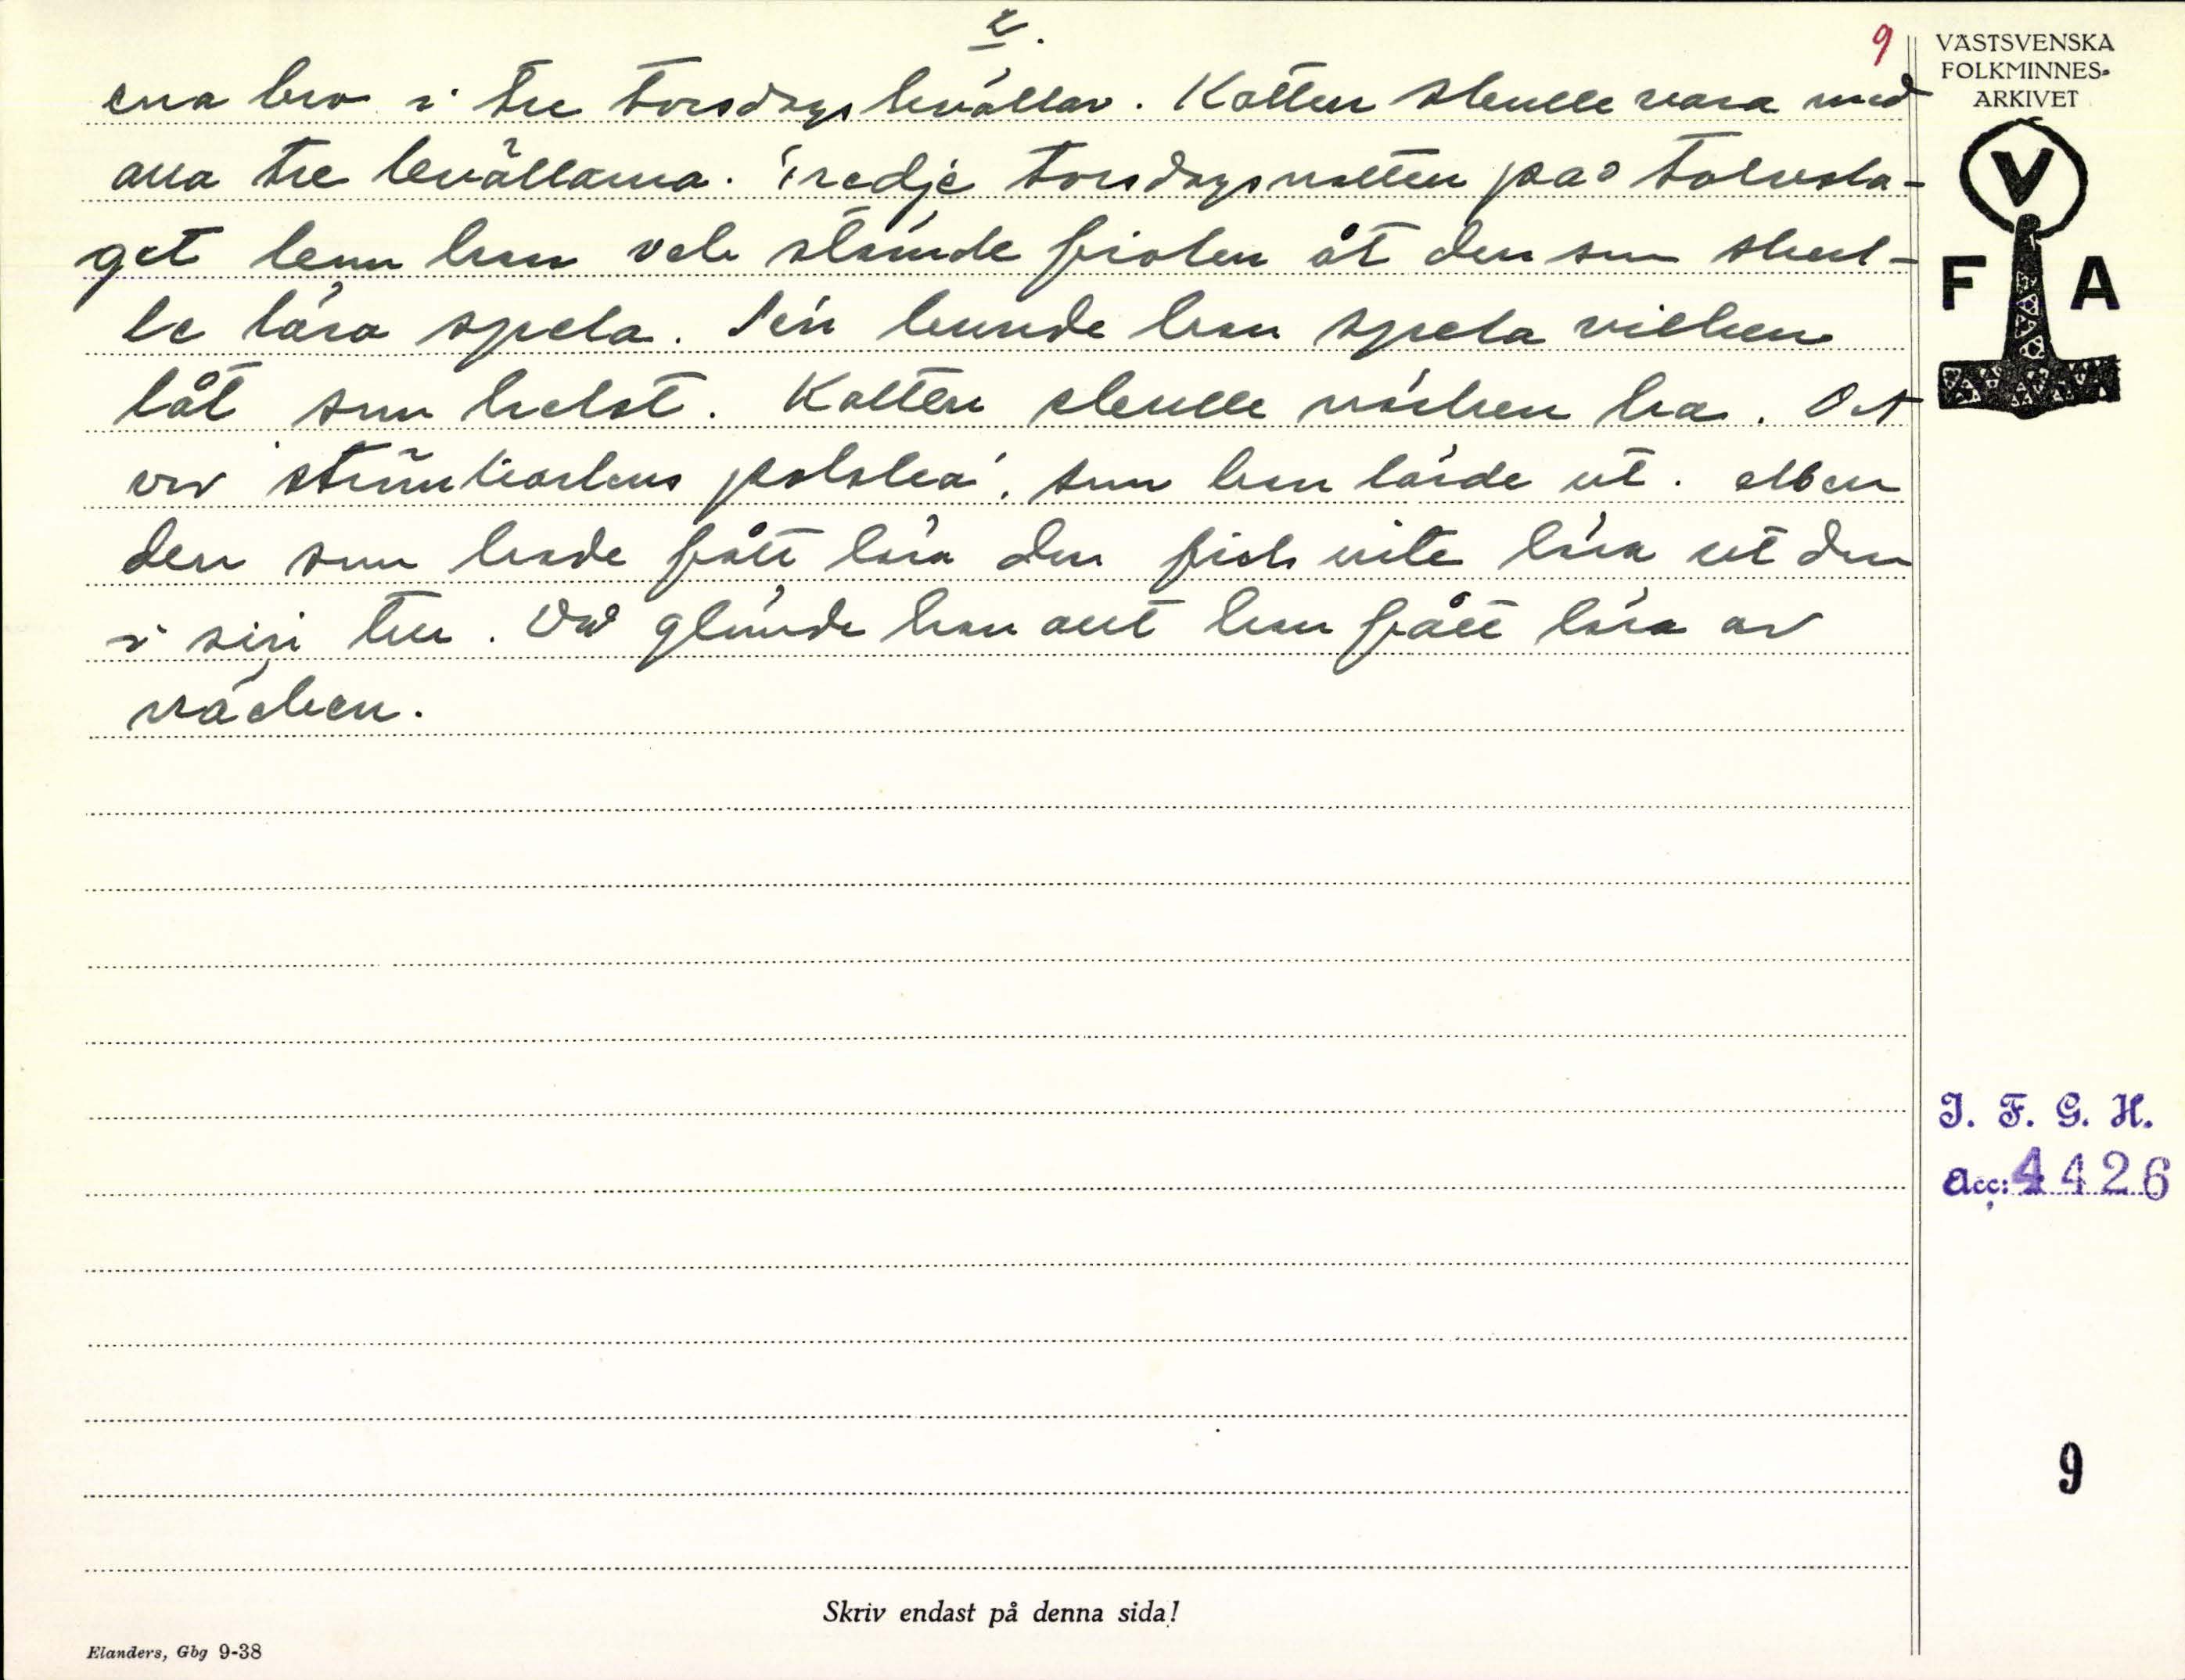 2.
9
ena bro i tre torsdagskvällar. Katten skulle vara med
alla tre kvällarna. Tredje torsdagsnatten på tolvsla-
get kom han och stämde fiolen åt den som skul-
le lära spela. Sen kunde han spela vilken
låt som helst. Katten skulle näcken ha. Det
var strömkarlens polska, som han lärde ut. Men
den som hade fått lära den fick inte lära ut den
i sin tur. Då glömde han allt han fått lära av
näcken.
VÄSTSVENSKA
FOLKMINNES-
ARKIVET
V
F A
I. F. G. H.
Acc: 4426
9
Skriv endast på denna sida!
Elanders, Gbg 9-38